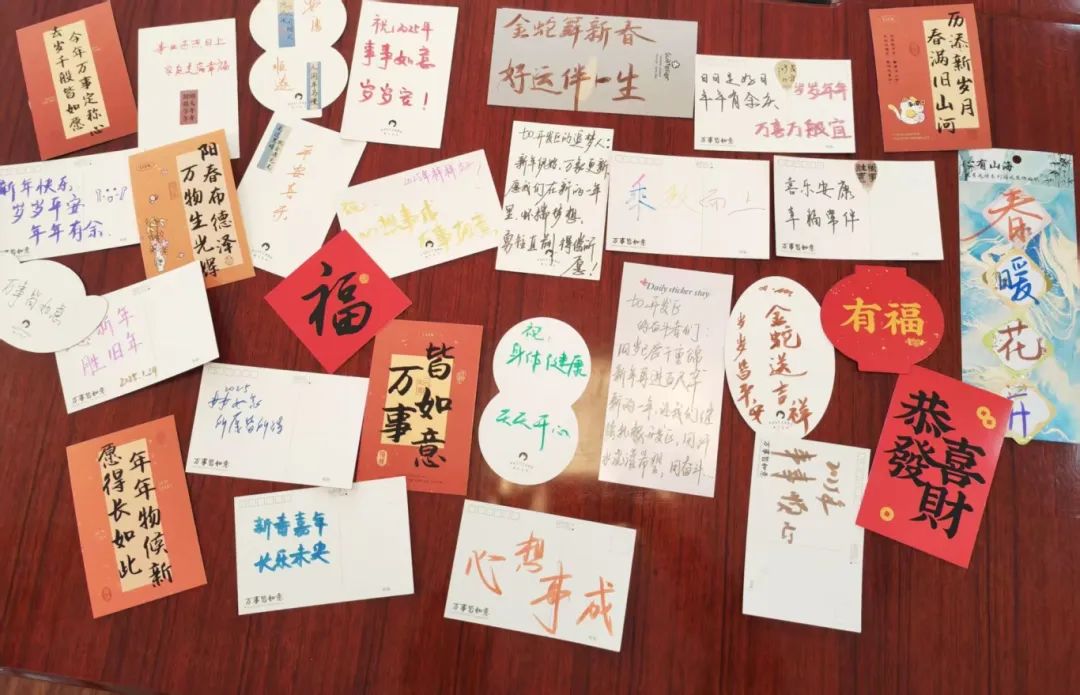 今年万事定称心
去岁千般皆如愿
事业还须日上
祝2025年
事事如意
岁岁安！
金蛇解新春
好运伴一生
日日是好日
年年有余庆
岁岁年年
万喜万般宜
历添新岁月
春满旧山河
新年快乐，
岁岁平安
年年有余.
万事皆如意
阳春布德泽
万物生光辉
平安喜乐
祝
心想事成
万事如意
致开发区的追梦人：
新年伊始，万象更新
愿我们在新的一年
里，怀揣梦想，
勇往直前，得偿所
愿！
乘
而上
喜乐安康
幸福常伴
万事皆如意
心有山海
春
暖
花
开
万事皆如意
新年
胜旧年
2025.1.29
万事皆如意
福
2025
所愿皆所得
万事皆如意
皆如意
万事
祝，
身体健康
天天开心
Daily sticker stay
致开发区
的奋斗者们：
新年再进百尺竿
新的一年，让我们继
金蛇送吉祥
岁岁皆平安
有福
恭喜
發財
年年物候新
愿得长如此
新春嘉年
长乐未央
万事皆如意
心想
事成
万事皆如意
2025年
万事皆如意